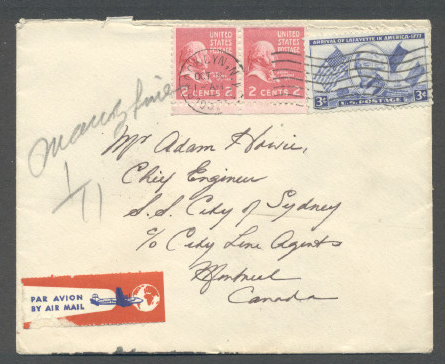 UNITED
STATES
POSTAGE
2 CENTS 2
UNITED
STATES
POSTAGE
2 CENTS 2
ARRIVAL OF LAFAYETTE IN AMERICA-1777
3¢ U.S. POSTAGE 3¢
1/11
Mr Adam Howie,
Chief Engineer
S.S. City of Sydney
c/o City Line Agents
Montreal
Canada
PAR AVION
BY AIR MAIL